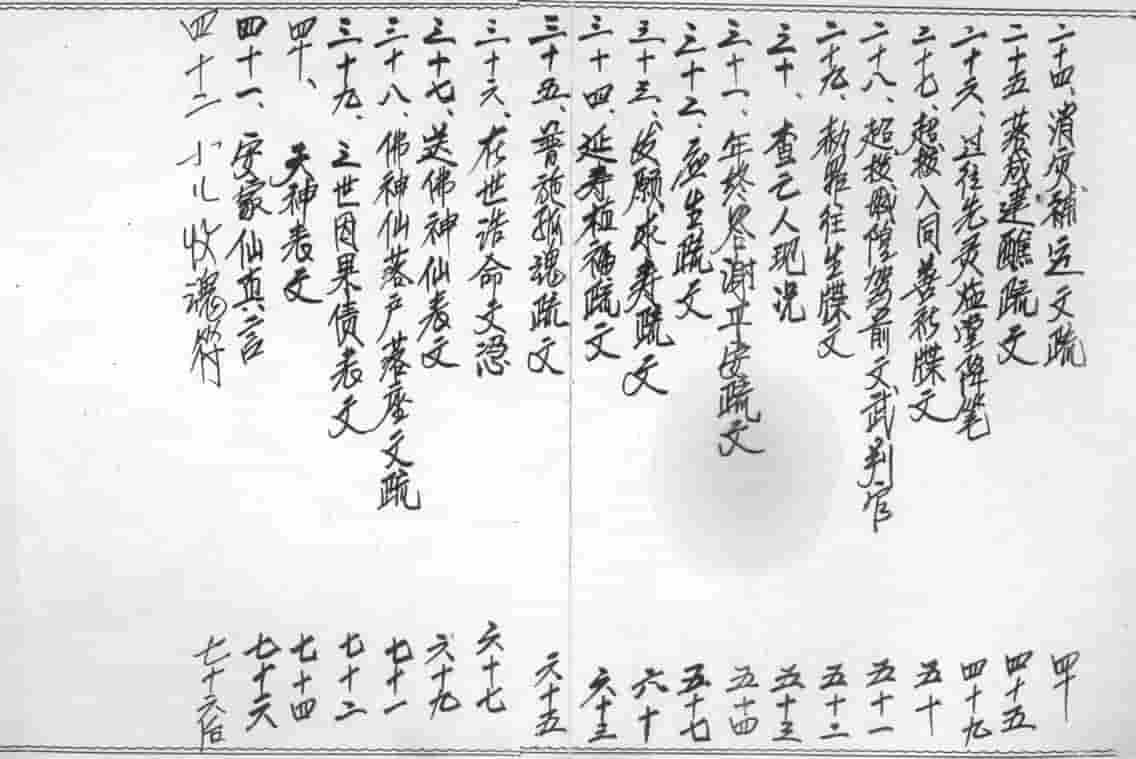 二十四、消灾补运文疏 四十
二十五 落成建醮疏文 四十五
二十六、过往先灵临堂降笔 四十九
二十七、超拔入同善社牒文 五十
二十八、超拔城隍驾前文武判官 五十一
二十九、敕照往生牒文 五十二
三十、查亡人现况 五十三
三十一、年终答谢平安疏文 五十四
三十二、应生疏文 五十七
三十三、发愿求寿疏文 六十
三十四、延寿植福疏文 六十三
三十五、普施孤魂疏文 六十五
三十六、在世诰命文 六十七
三十七、送佛神仙表文 六十九
三十八、佛神仙落户落座文疏 七十一
三十九、三世因果债表文 七十二
四十、天神表文 七十四
四十一、安家仙真言 七十六
四十二 小儿收魂符 七十六后